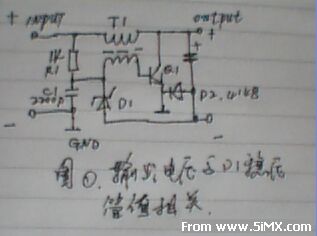 + input T1 output +
1K
R1
Q1
C1
2200p
D1
D2.4148
- -
GND
图①.输出电压与D1稳压
管值相关.
From: www.5iMX.com